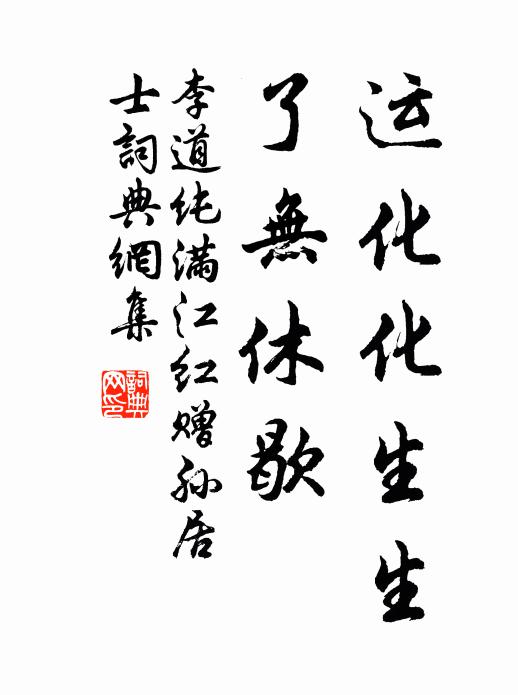 运化化生生
了無休歇
李道纯满江红赠孙居
士詞典網集
詞典
网印